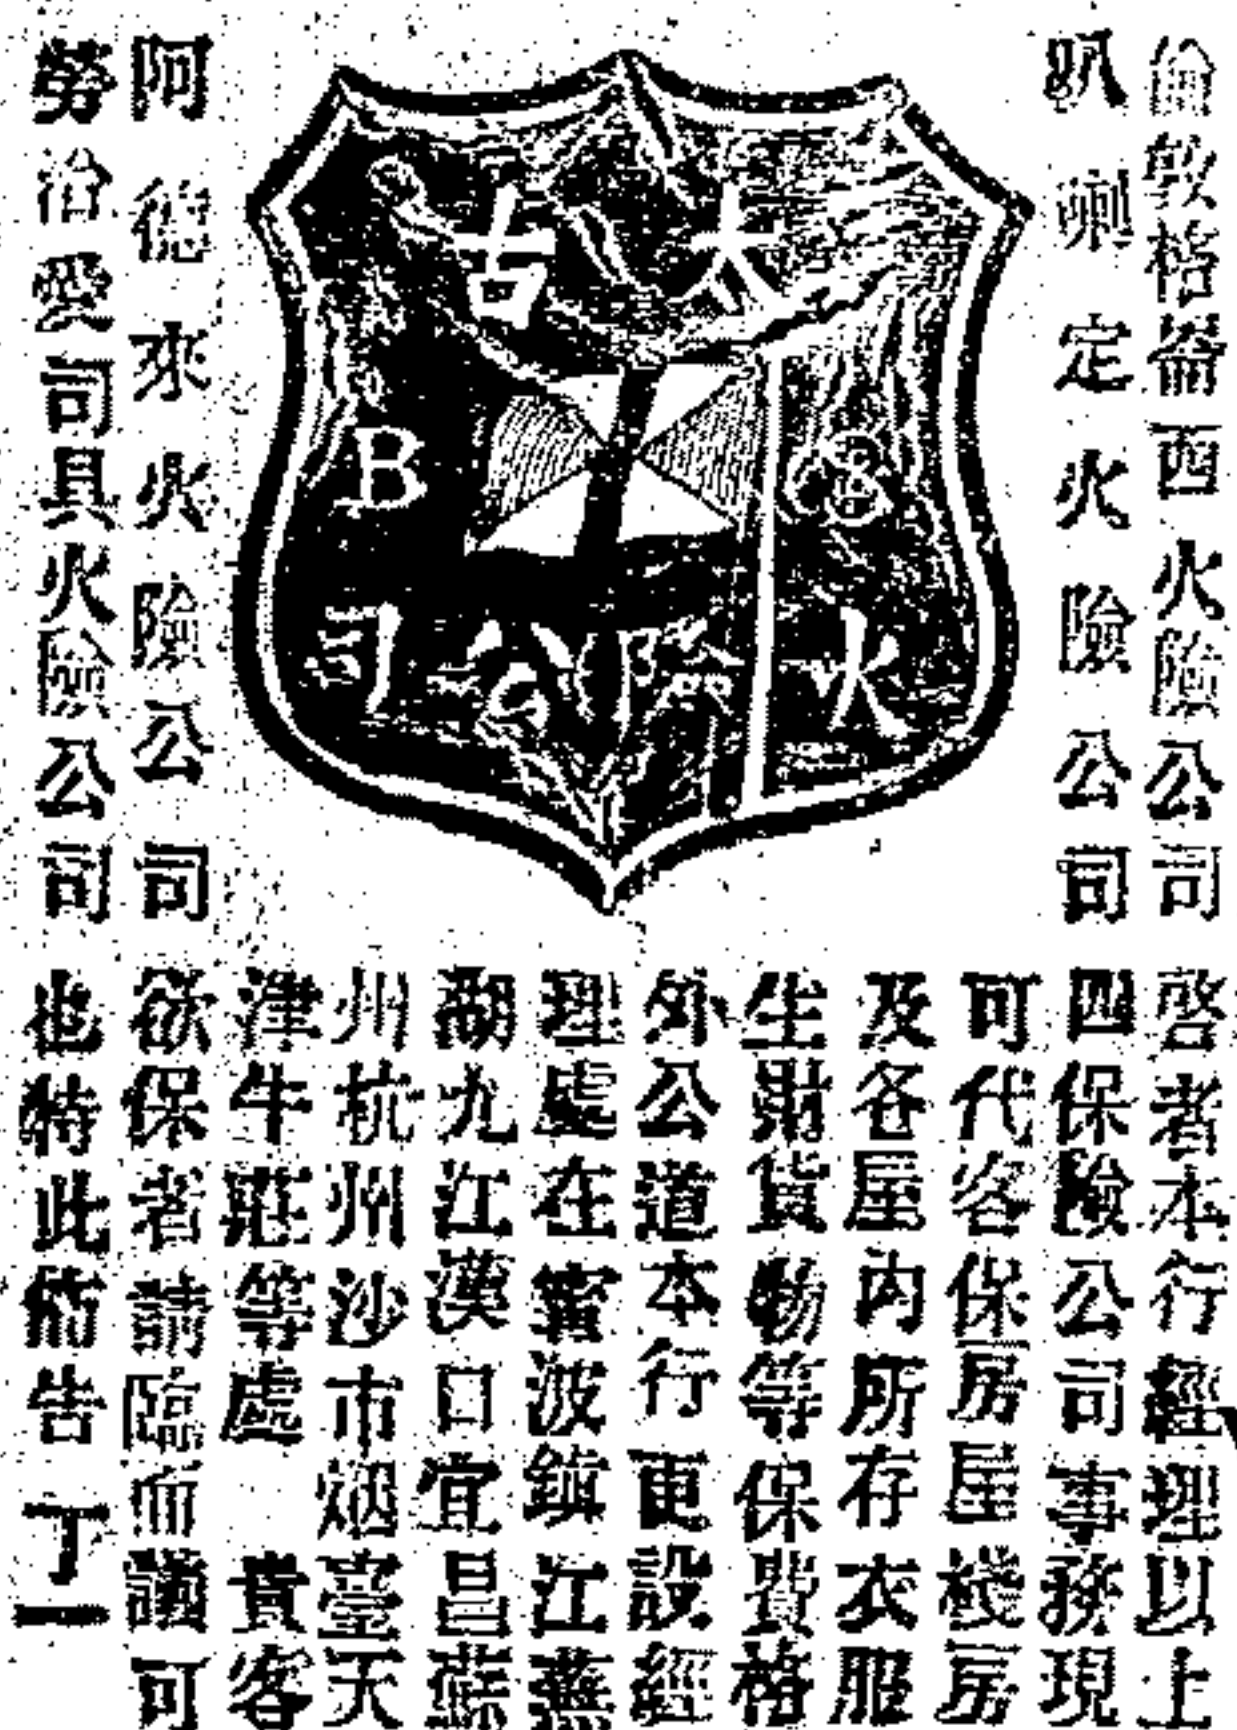 倫敦格崙西火險公司
叭喇定火險公司
太古
B & S
火險公司
阿德來火險公司
勞治愛司具火險公司
啓者本行經理以上
四保險公司事務現
可代客保房屋棧房
及各屋內所存衣服
生財貨物等保費格
外公道本行更設經
理處在寗波鎮江蕪
湖九江漢口宜昌蘇
州杭州沙市烟臺天
津牛莊等處 貴客
欲保者請臨面議可
也特此佈告 丁一